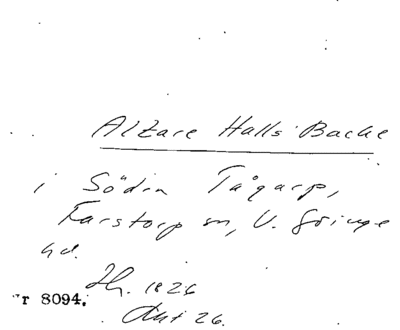 Altare Halls Backe
i Södra Tågarp,
Farstorp sn, V. Göinge
hd.
Jh. 1826
Akt 26.
r 8094.